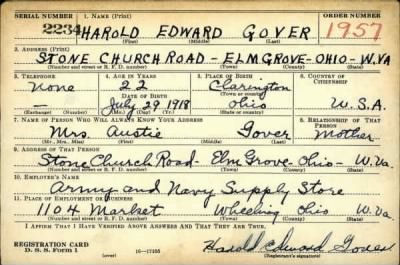 SERIAL NUMBER 1. NAME (Print) ORDER NUMBER
2234 HAROLD EDWARD GOVER 1957
(First) (Middle) (Last)
2. ADDRESS (Print)
STONE CHURCH ROAD - ELM GROVE - OHIO - W.VA
(Number and street or R. F. D. number) (Town) (County) (State)
3. TELEPHONE 4. AGE IN YEARS 5. PLACE OF BIRTH 6. COUNTRY OF CITIZENSHIP
None 22 Clarington
DATE OF BIRTH (Town or county)
— July 29 1918 Ohio U.S.A.
(Exchange) (Number) (Mo.) (Day) (Yr.) (State or country)
7. NAME OF PERSON WHO WILL ALWAYS KNOW YOUR ADDRESS 8. RELATIONSHIP OF THAT PERSON
Mrs. Austie Gover Mother
(Mr., Mrs., Miss) (First) (Middle) (Last)
9. ADDRESS OF THAT PERSON
Stone Church Road - Elm Grove - Ohio - W. Va.
(Number and street or R. F. D. number) (Town) (County) (State)
10. EMPLOYER'S NAME
Army and Navy Supply Store
11. PLACE OF EMPLOYMENT OR BUSINESS
1104 Market Wheeling Ohio W. Va.
(Number and street or R. F. D. number) (Town) (County) (State)
I AFFIRM THAT I HAVE VERIFIED ABOVE ANSWERS AND THAT THEY ARE TRUE.
REGISTRATION CARD Harold Edward Gover
D. S. S. Form 1 (over) (Registrant's signature)